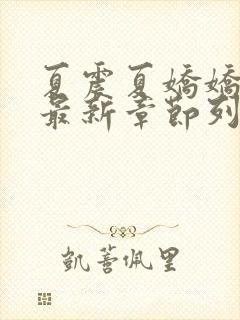 夏震夏嬌嬌
最新章節列
凱蓍佩里